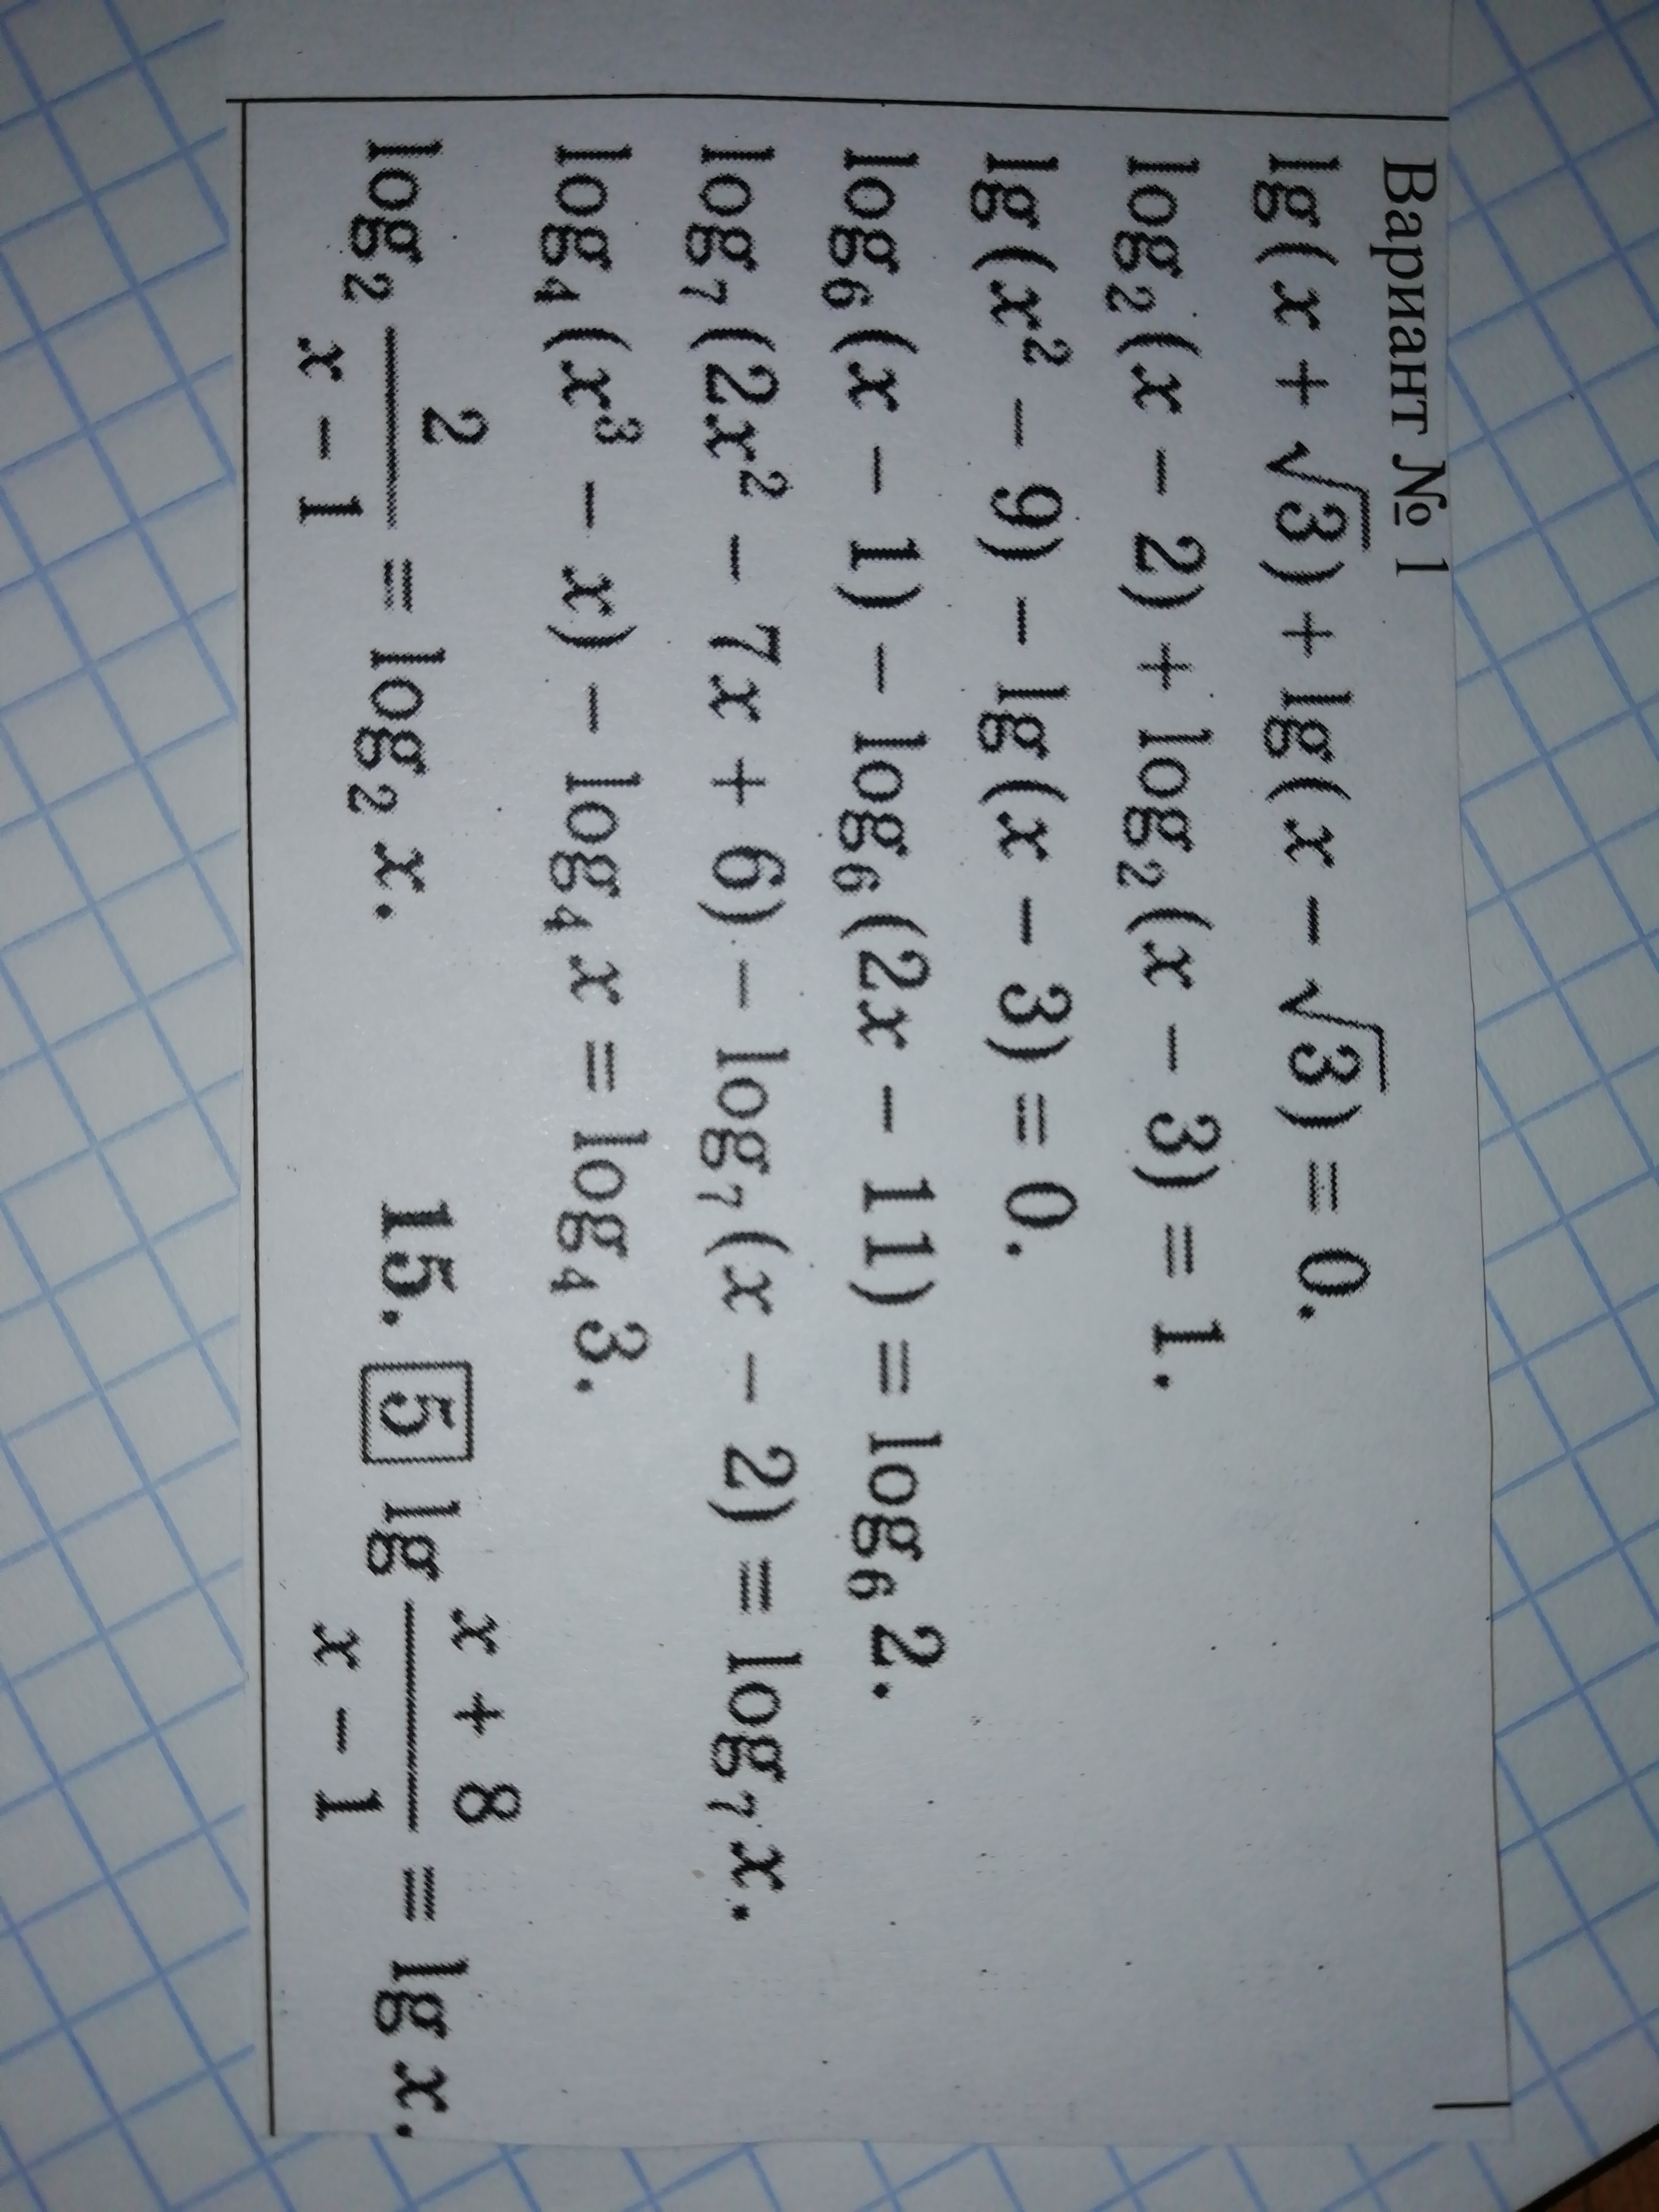 Вариант № 1
lg(x + √3) + lg(x − √3) = 0.
log₂(x − 2) + log₂(x − 3) = 1.
lg(x² − 9) − lg(x − 3) = 0.
log₆(x − 1) − log₆(2x − 11) = log₆ 2.
log₇(2x² − 7x + 6) − log₇(x − 2) = log₇ x.
log₄(x³ − x) − log₄ x = log₄ 3.
log₂ 2/(x − 1) = log₂ x. 15. 5 lg (x + 8)/(x − 1) = lg x.